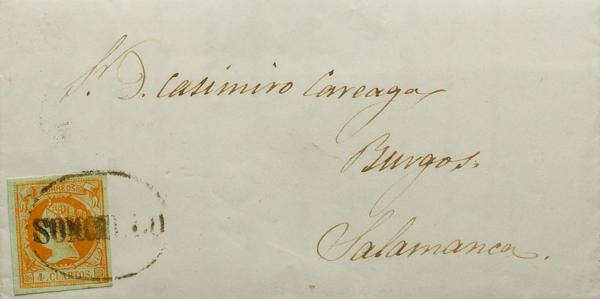 Sr. D. Casimiro Careaga
Burgos.
Salamanca.
CORREOS
SONCILLO
4 CUARTOS.